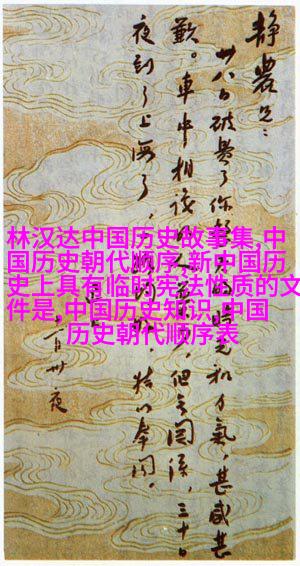 静農兄：
廿八日破費了你
時光和力氣，甚感甚
歉。車中相識的人
但無関係，三十日
夜到了上海了，
特以奉聞。
卅夜
林汉达中国历史故事集,中
国历史朝代顺序,新中国历
史上具有临时宪法性质的文
件是,中国历史知识,中国
历史朝代顺序表